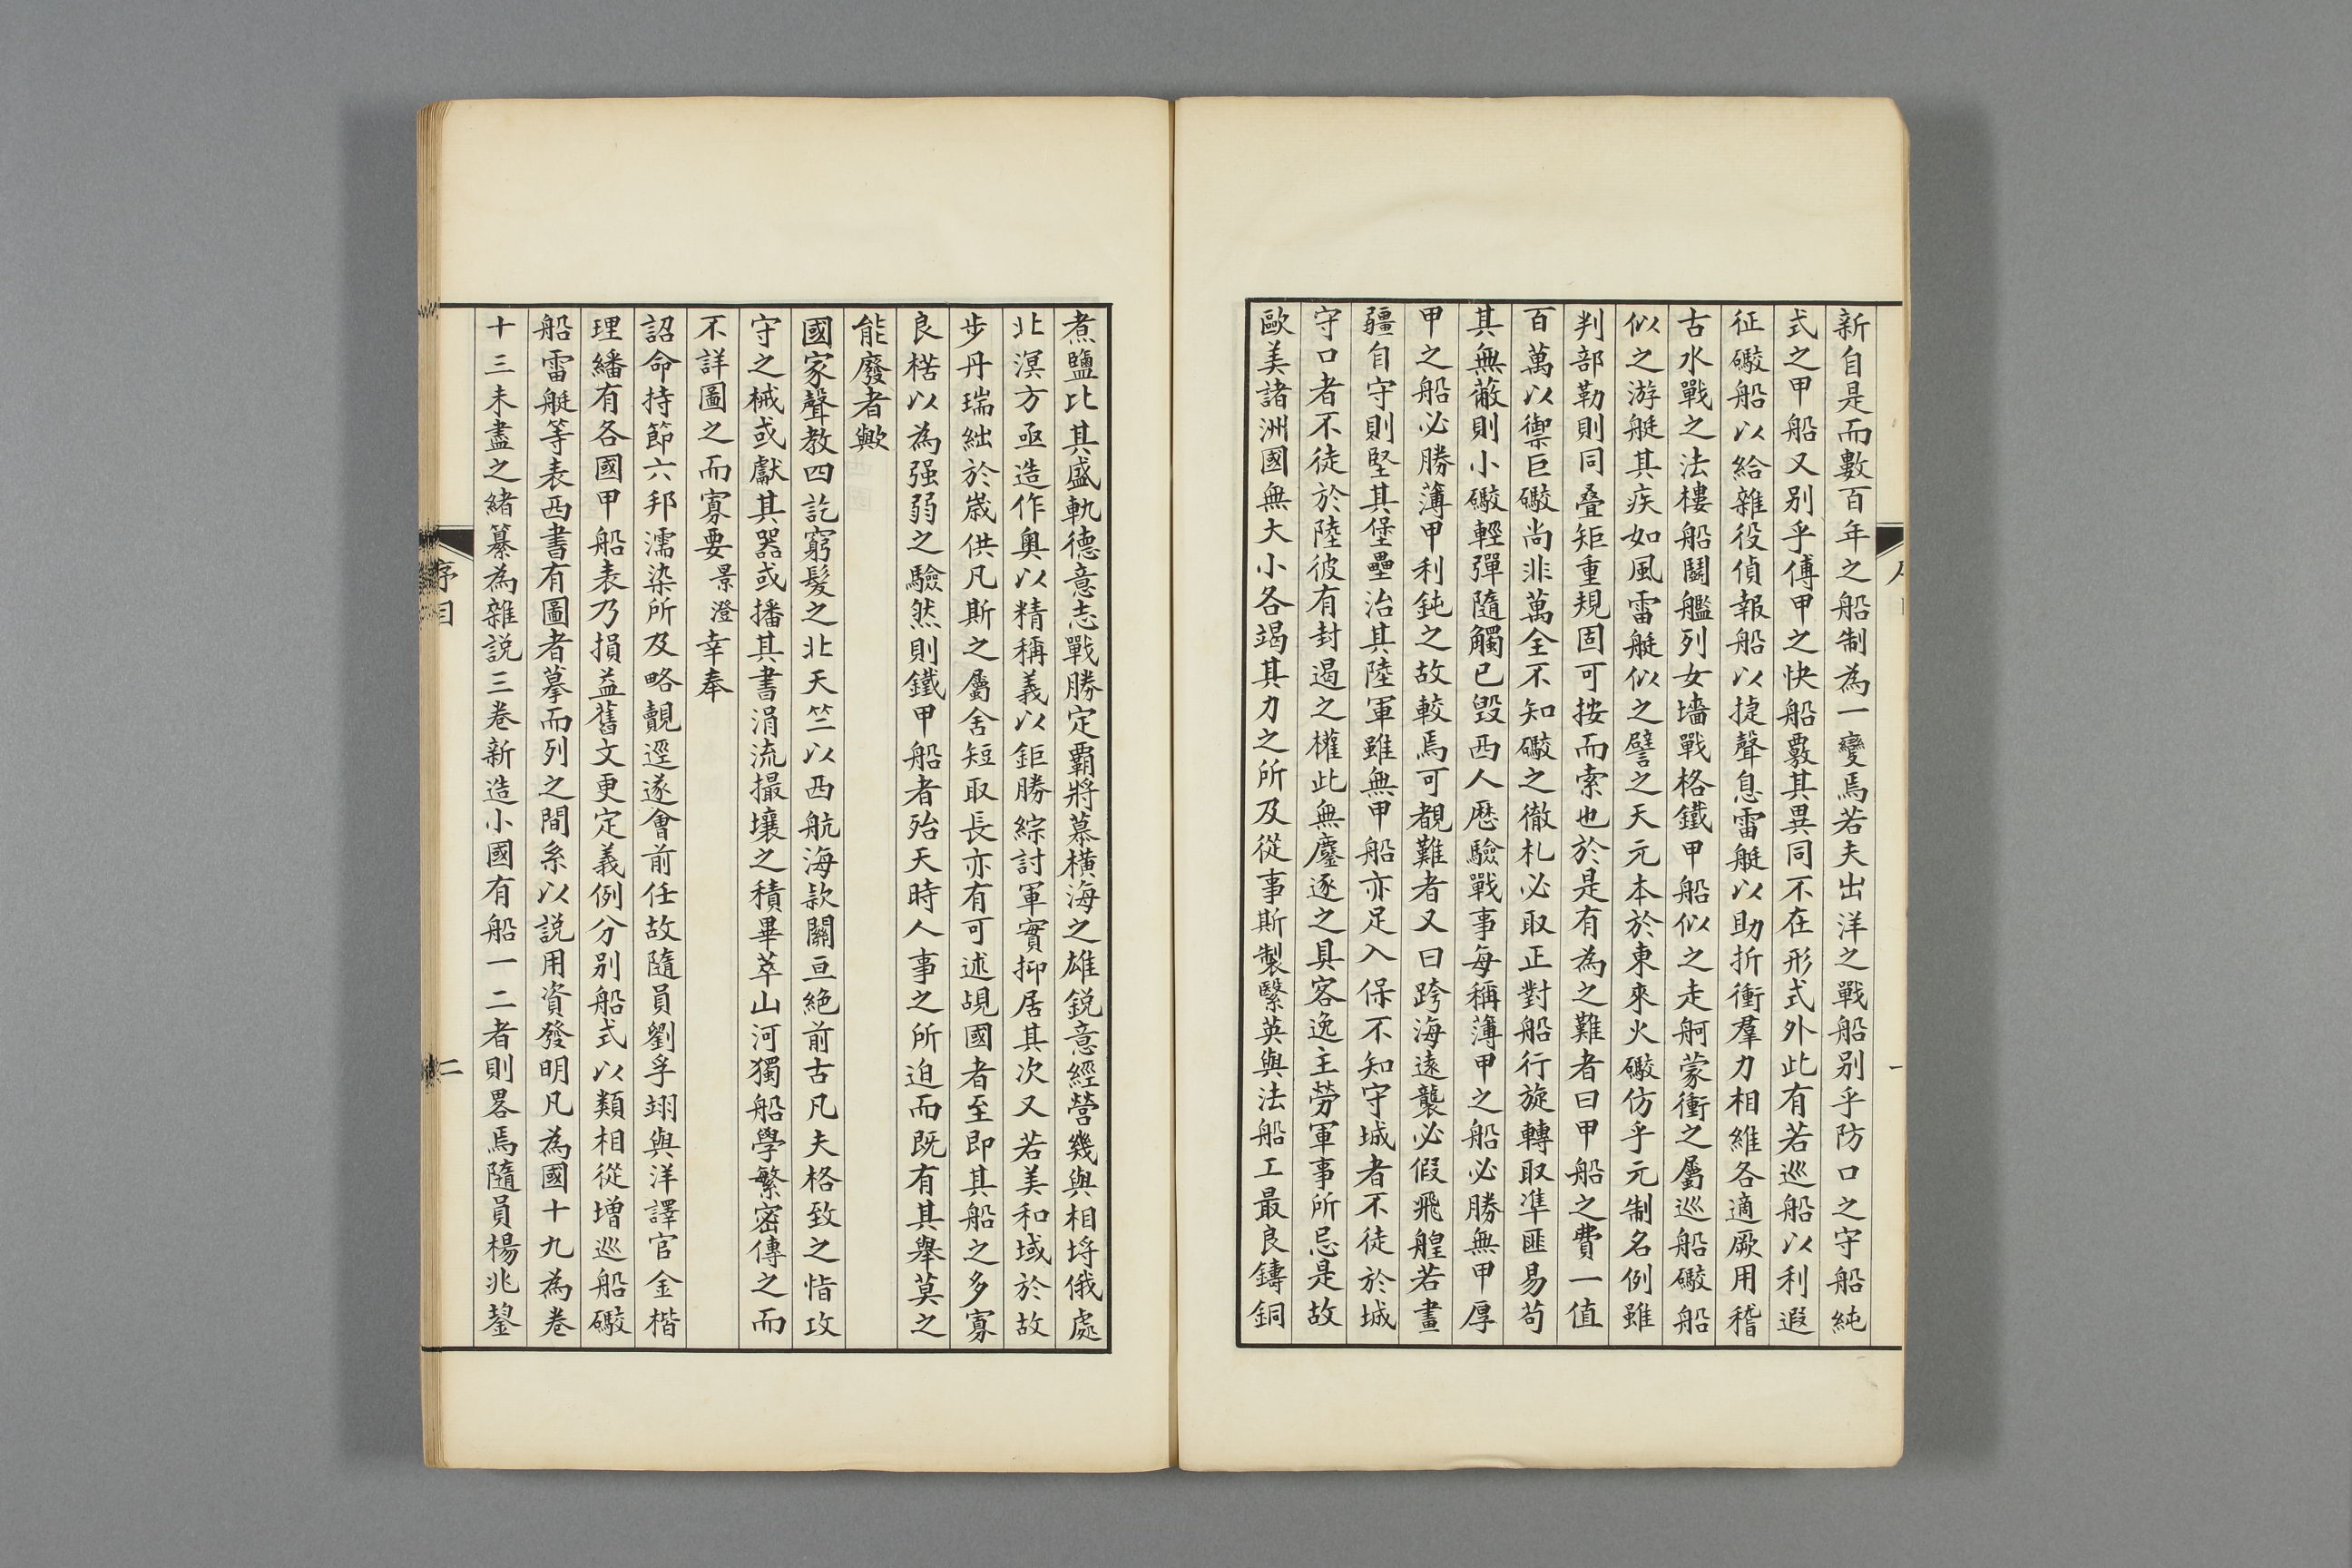 新自是而數百年之船制為一變焉若夫出洋之戰船别乎防口之守船純
式之甲船又别乎傅甲之快船覈其異同不在形式外此有若巡船以利遐
征礮船以給雜役偵報船以捷聲息雷艇以助折衝羣力相維各適厥用稽
古水戰之法樓船鬬艦列女墻戰格鐵甲船似之走舸蒙衝之屬巡船礮船
似之游艇其疾如風雷艇似之譬之天元本於東來火礮仿乎元制名例雖
判部勒則同叠矩重規固可按而索也於是有為之難者曰甲船之費一值
百萬以禦巨礮尚非萬全不知礮之徹札必取正對船行旋轉取準匪易苟
其無蔽則小礮輕彈隨觸已毀西人歷驗戰事每稱薄甲之船必勝無甲厚
甲之船必勝薄甲利鈍之故較焉可覩難者又曰跨海遠襲必假飛艎若畫
疆自守則堅其堡壘治其陸軍雖無甲船亦足入保不知守城者不徒於城
守口者不徒於陸彼有封遏之權此無鏖逐之具客逸主勞軍事所忌是故
歐美諸洲國無大小各竭其力之所及從事斯製繄英與法船工最良鑄銅
煮鹽比其盛軌德意志戰勝定霸將慕橫海之雄銳意經營幾與相埒俄處
北溟方亟造作奥以精稱義以鉅勝綜討軍實抑居其次又若美和域於故
步丹瑞絀於歲供凡斯之屬舍短取長亦有可述覘國者至即其船之多寡
良楛以為强弱之驗然則鐵甲船者殆天時人事之所迫而既有其舉莫之
能廢者歟
國家聲教四訖窮髮之北天竺以西航海款關亘絶前古凡夫格致之恉攻
守之械或獻其器或播其書涓流撮壤之積畢萃山河獨船學繁密傳之而
不詳圖之而寡要景澄幸奉
詔命持節六邦濡染所及略覿逕遂會前任故隨員劉孚翊與洋譯官金楷
理繙有各國甲船表乃損益舊文更定義例分别船式以類相從增巡船礮
船雷艇等表西書有圖者摹而列之間系以説用資發明凡為國十九為卷
十三未盡之緒纂為雜説三卷新造小國有船一二者則畧焉隨員楊兆鋆
序目
二